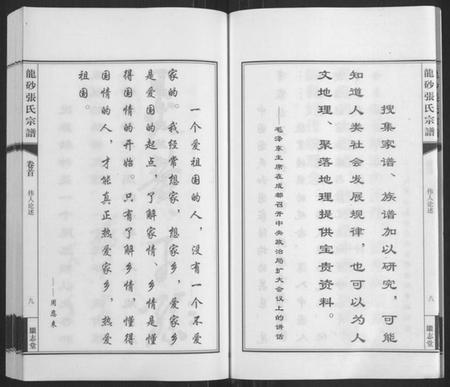 龍砂張氏宗譜
卷首
伟人论述
八
繼志堂
搜集家谱、族谱加以研究，可能
知道人类社会发展规律，也可以为人
文地理、聚落地理提供宝贵资料。
——毛泽东主席在成都召开中央政治局扩大会议上的讲话
一个爱祖国的人，没有一个不爱
家的。我经常想家，想家乡，爱家乡
是爱国的起点，了解家情、乡情是懂
得国情的开始。只有了解乡情，懂得
国情的人，才能真正热爱家乡，热爱
祖国。
——周恩来
龍砂張氏宗譜
卷首
伟人论述
九
繼志堂